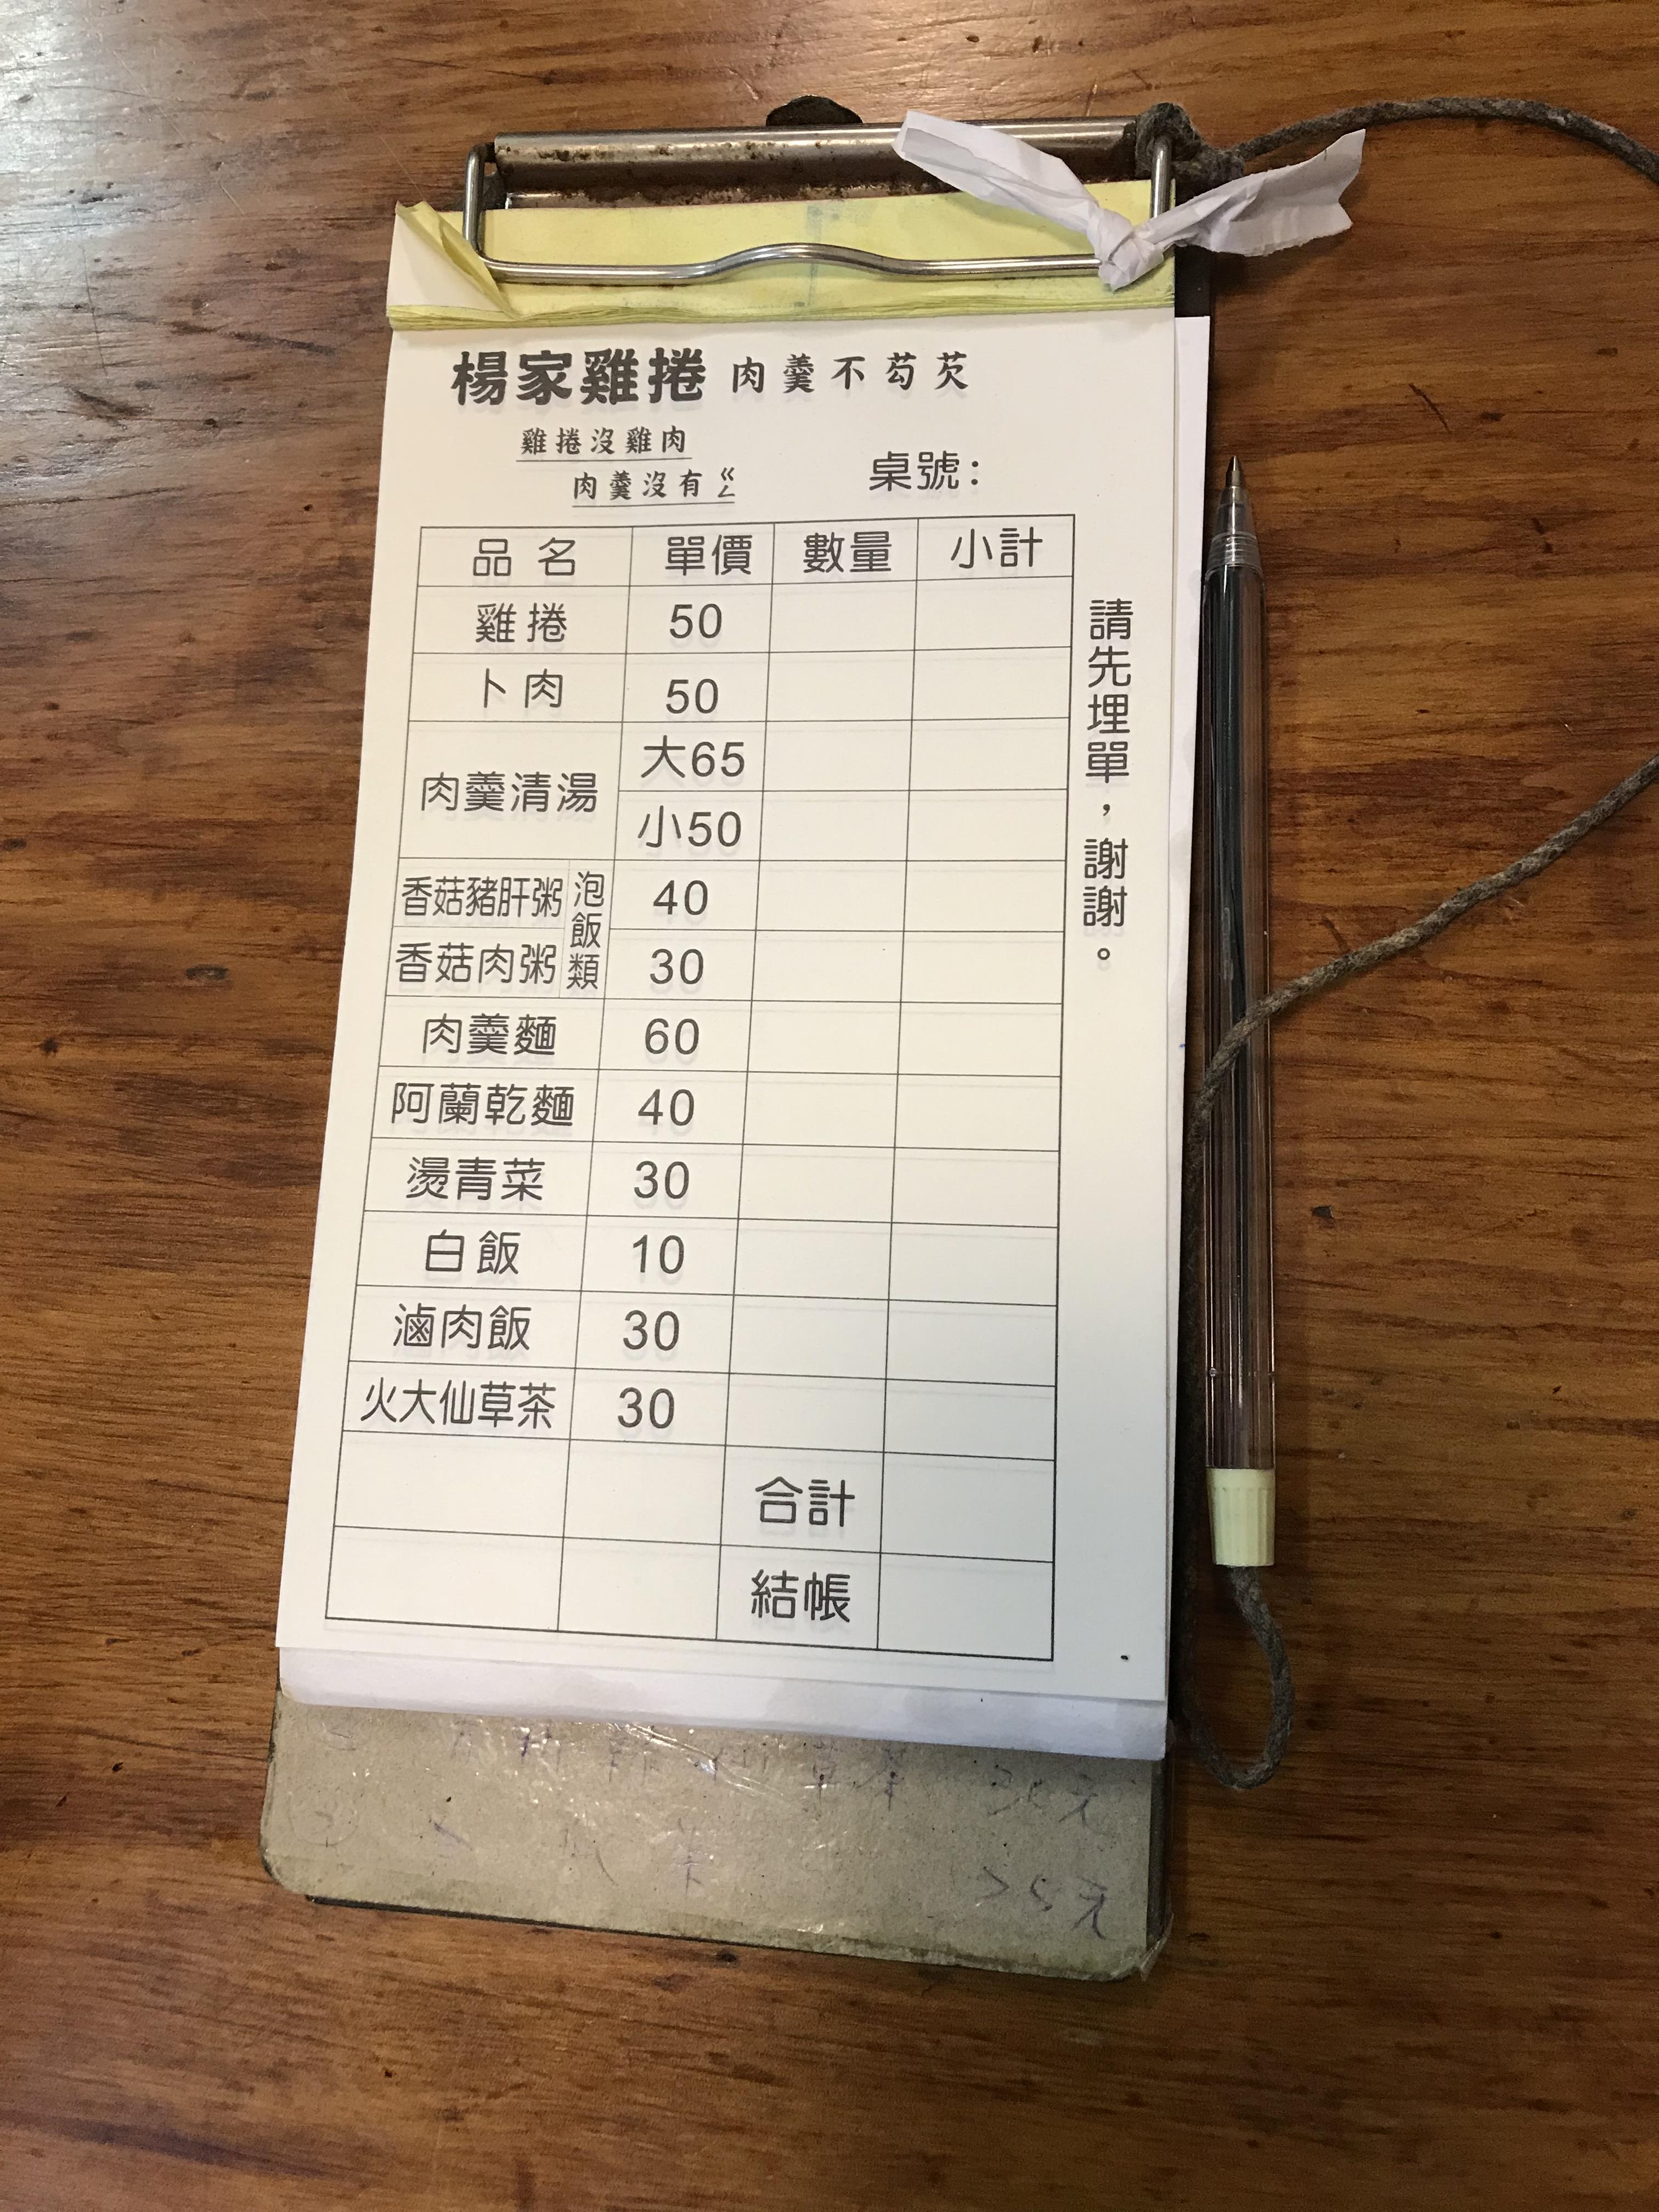 楊家雞捲 肉羹不芶芡
雞捲沒雞肉
肉羹沒有ㄍㄥ
桌號：
品名 單價 數量 小計
雞捲 50
卜肉 50
肉羹清湯 大65
小50
香菇豬肝粥 泡飯類 40
香菇肉粥 30
肉羹麵 60
阿蘭乾麵 40
燙青菜 30
白飯 10
滷肉飯 30
火大仙草茶 30
合計
結帳
請先埋單，謝謝。
仙草茶 元
茶 元